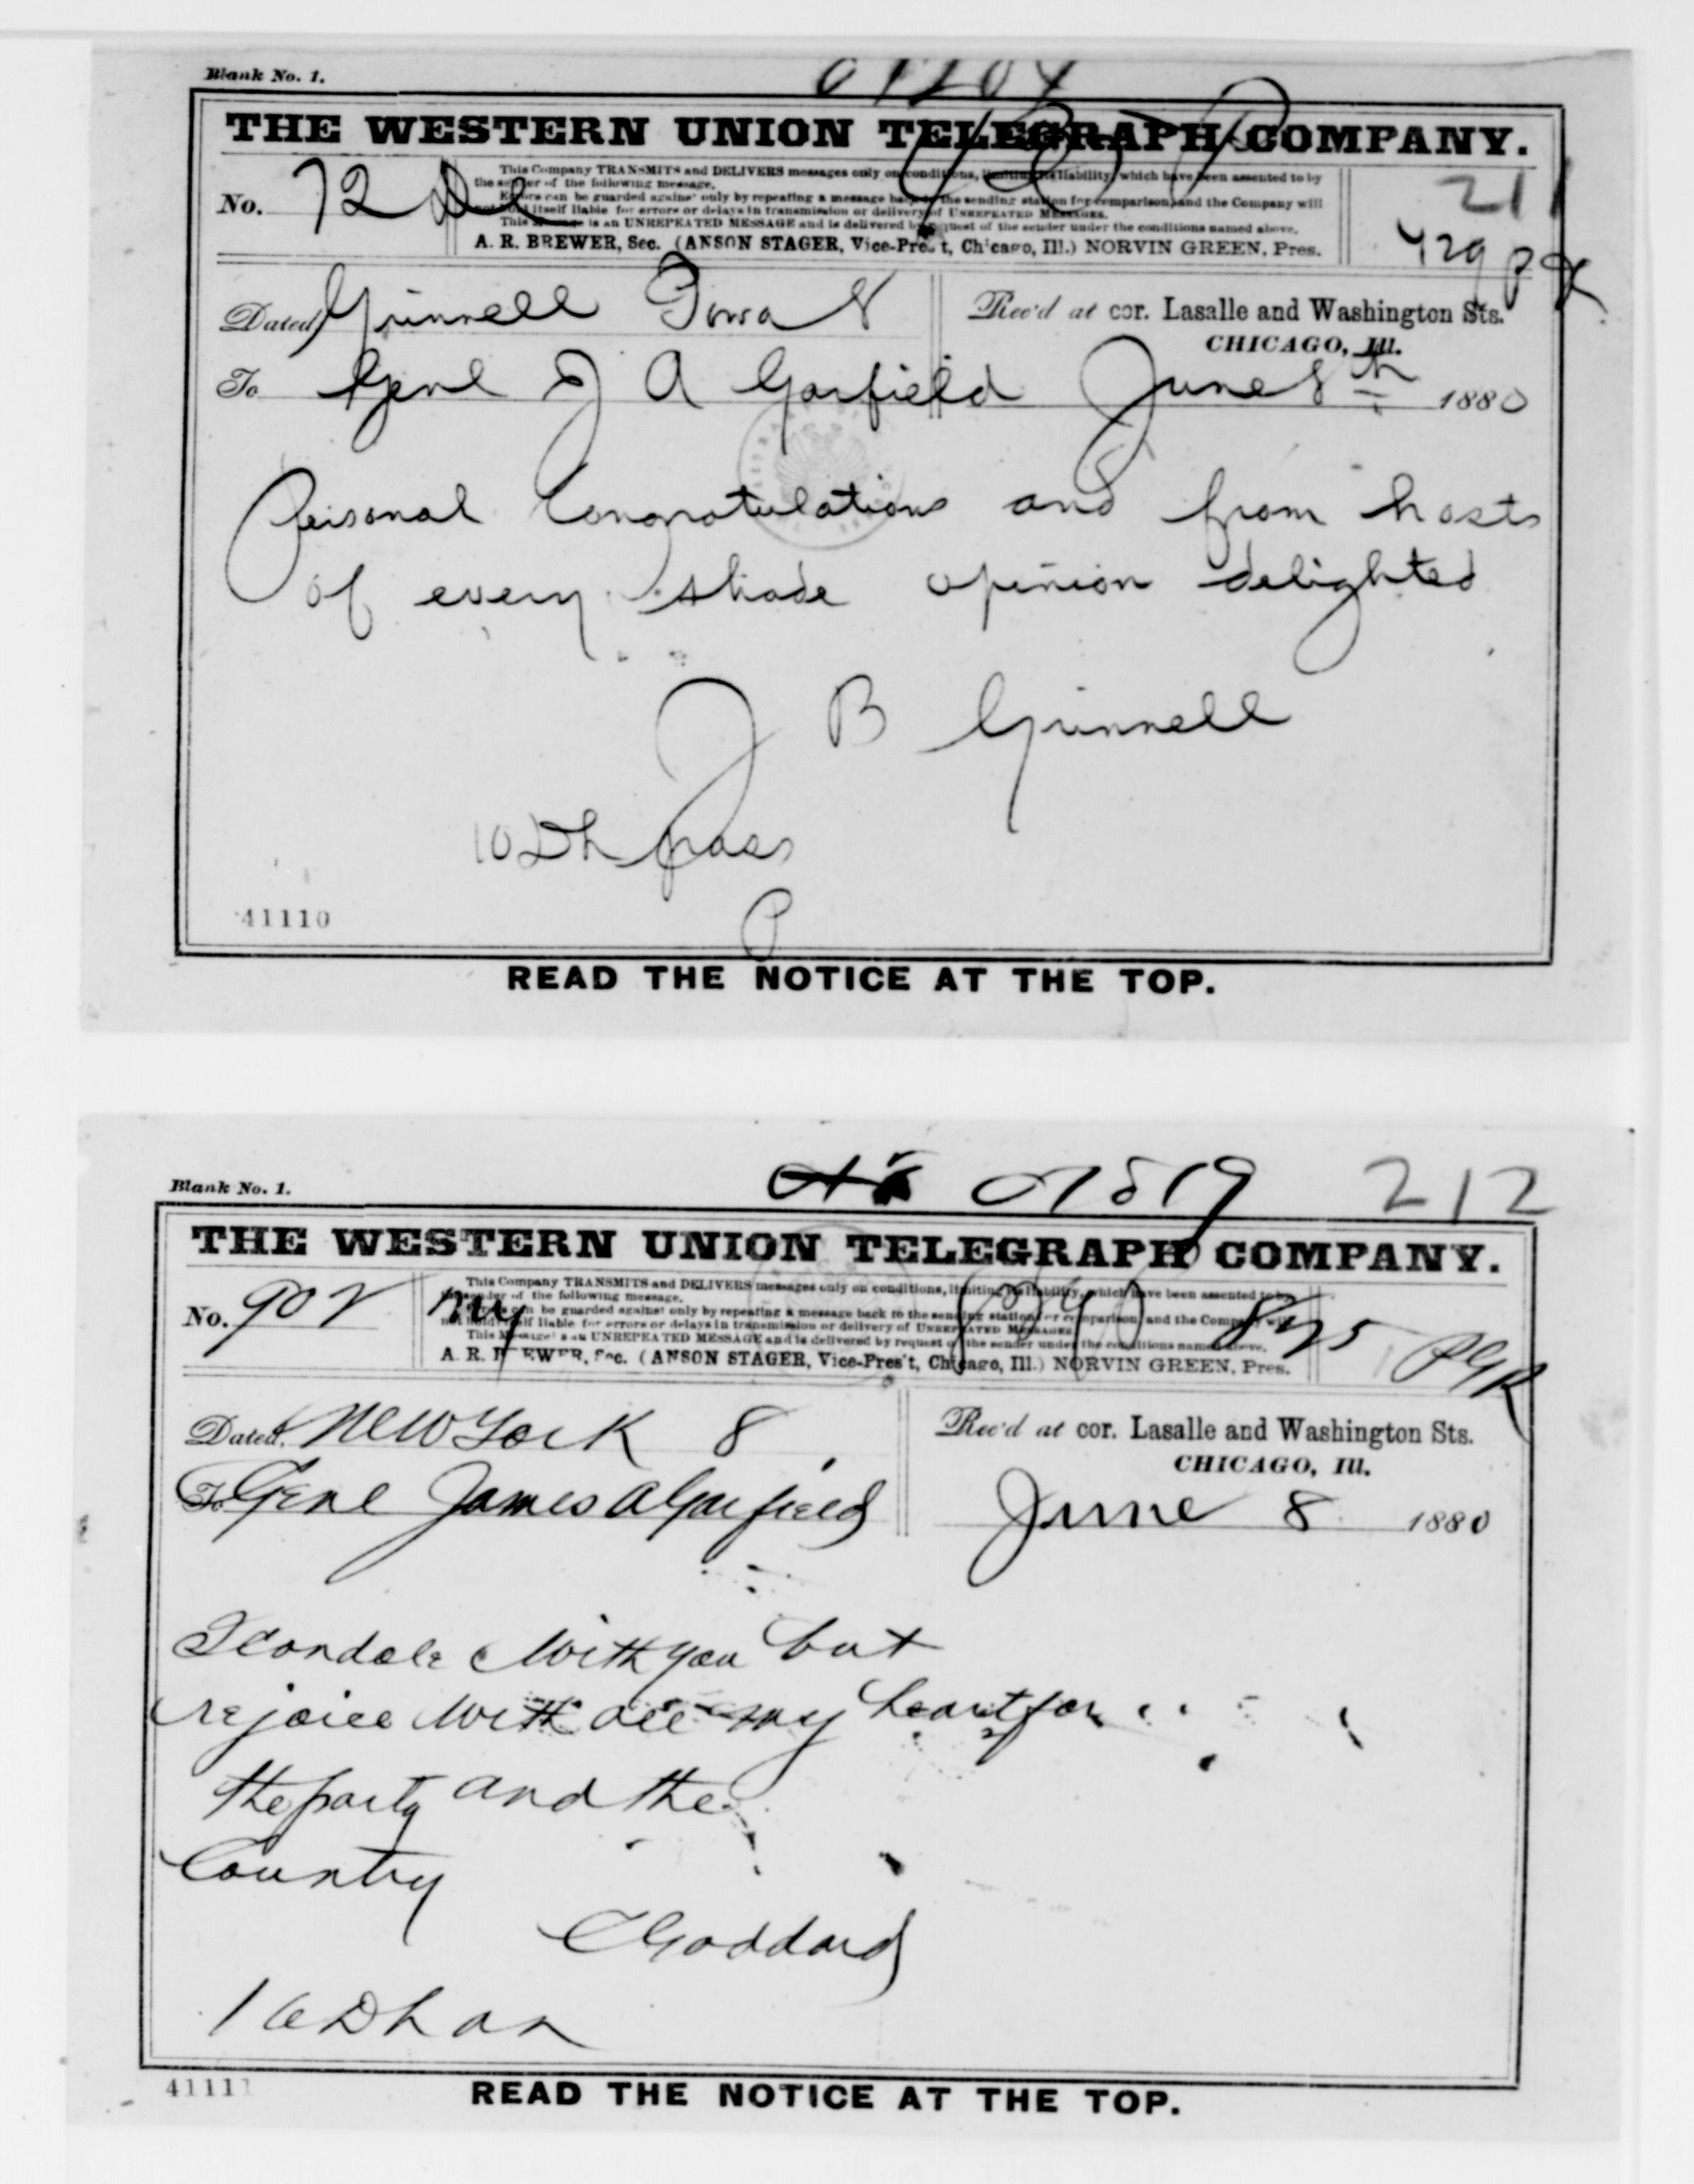 Blank No. 1.
THE WESTERN UNION TELEGRAPH COMPANY.
211
No. 72
This Company TRANSMITS and DELIVERS messages only on conditions, limiting its liability, which have been assented to by
the sender of the following message.
Errors can be guarded against only by repeating a message back to the sending station for comparison, and the Company will
not hold itself liable for errors or delays in transmission or delivery of UNREPEATED MESSAGES.
This Message is an UNREPEATED MESSAGE and is delivered by request of the sender under the conditions named above.
A. R. BREWER, Sec. (ANSON STAGER, Vice-Pres't, Chicago, Ill.) NORVIN GREEN, Pres.
Dated Grinnell Iowa 8
Rec'd at cor. Lasalle and Washington Sts.
CHICAGO, Ill.
To Genl J A Garfield June 8th 1880
Personal Congratulations and from hosts
of every shade opinion delighted
J B Grinnell
10 Dh
41110
READ THE NOTICE AT THE TOP.
07519 212
Blank No. 1.
THE WESTERN UNION TELEGRAPH COMPANY.
No. 902 Ny
This Company TRANSMITS and DELIVERS messages only on conditions, limiting its liability, which have been assented to by
the sender of the following message.
Errors can be guarded against only by repeating a message back to the sending station for comparison, and the Company will
not hold itself liable for errors or delays in transmission or delivery of UNREPEATED MESSAGES.
This Message is an UNREPEATED MESSAGE and is delivered by request of the sender under the conditions named above.
A. R. BREWER, Sec. (ANSON STAGER, Vice-Pres't, Chicago, Ill.) NORVIN GREEN, Pres.
Dated New York 8
Rec'd at cor. Lasalle and Washington Sts.
CHICAGO, Ill.
To Genl James A Garfield
June 8 1880
I condole with you but
rejoice with all my heart for
the party and the
Country
C Goddard
41111
READ THE NOTICE AT THE TOP.